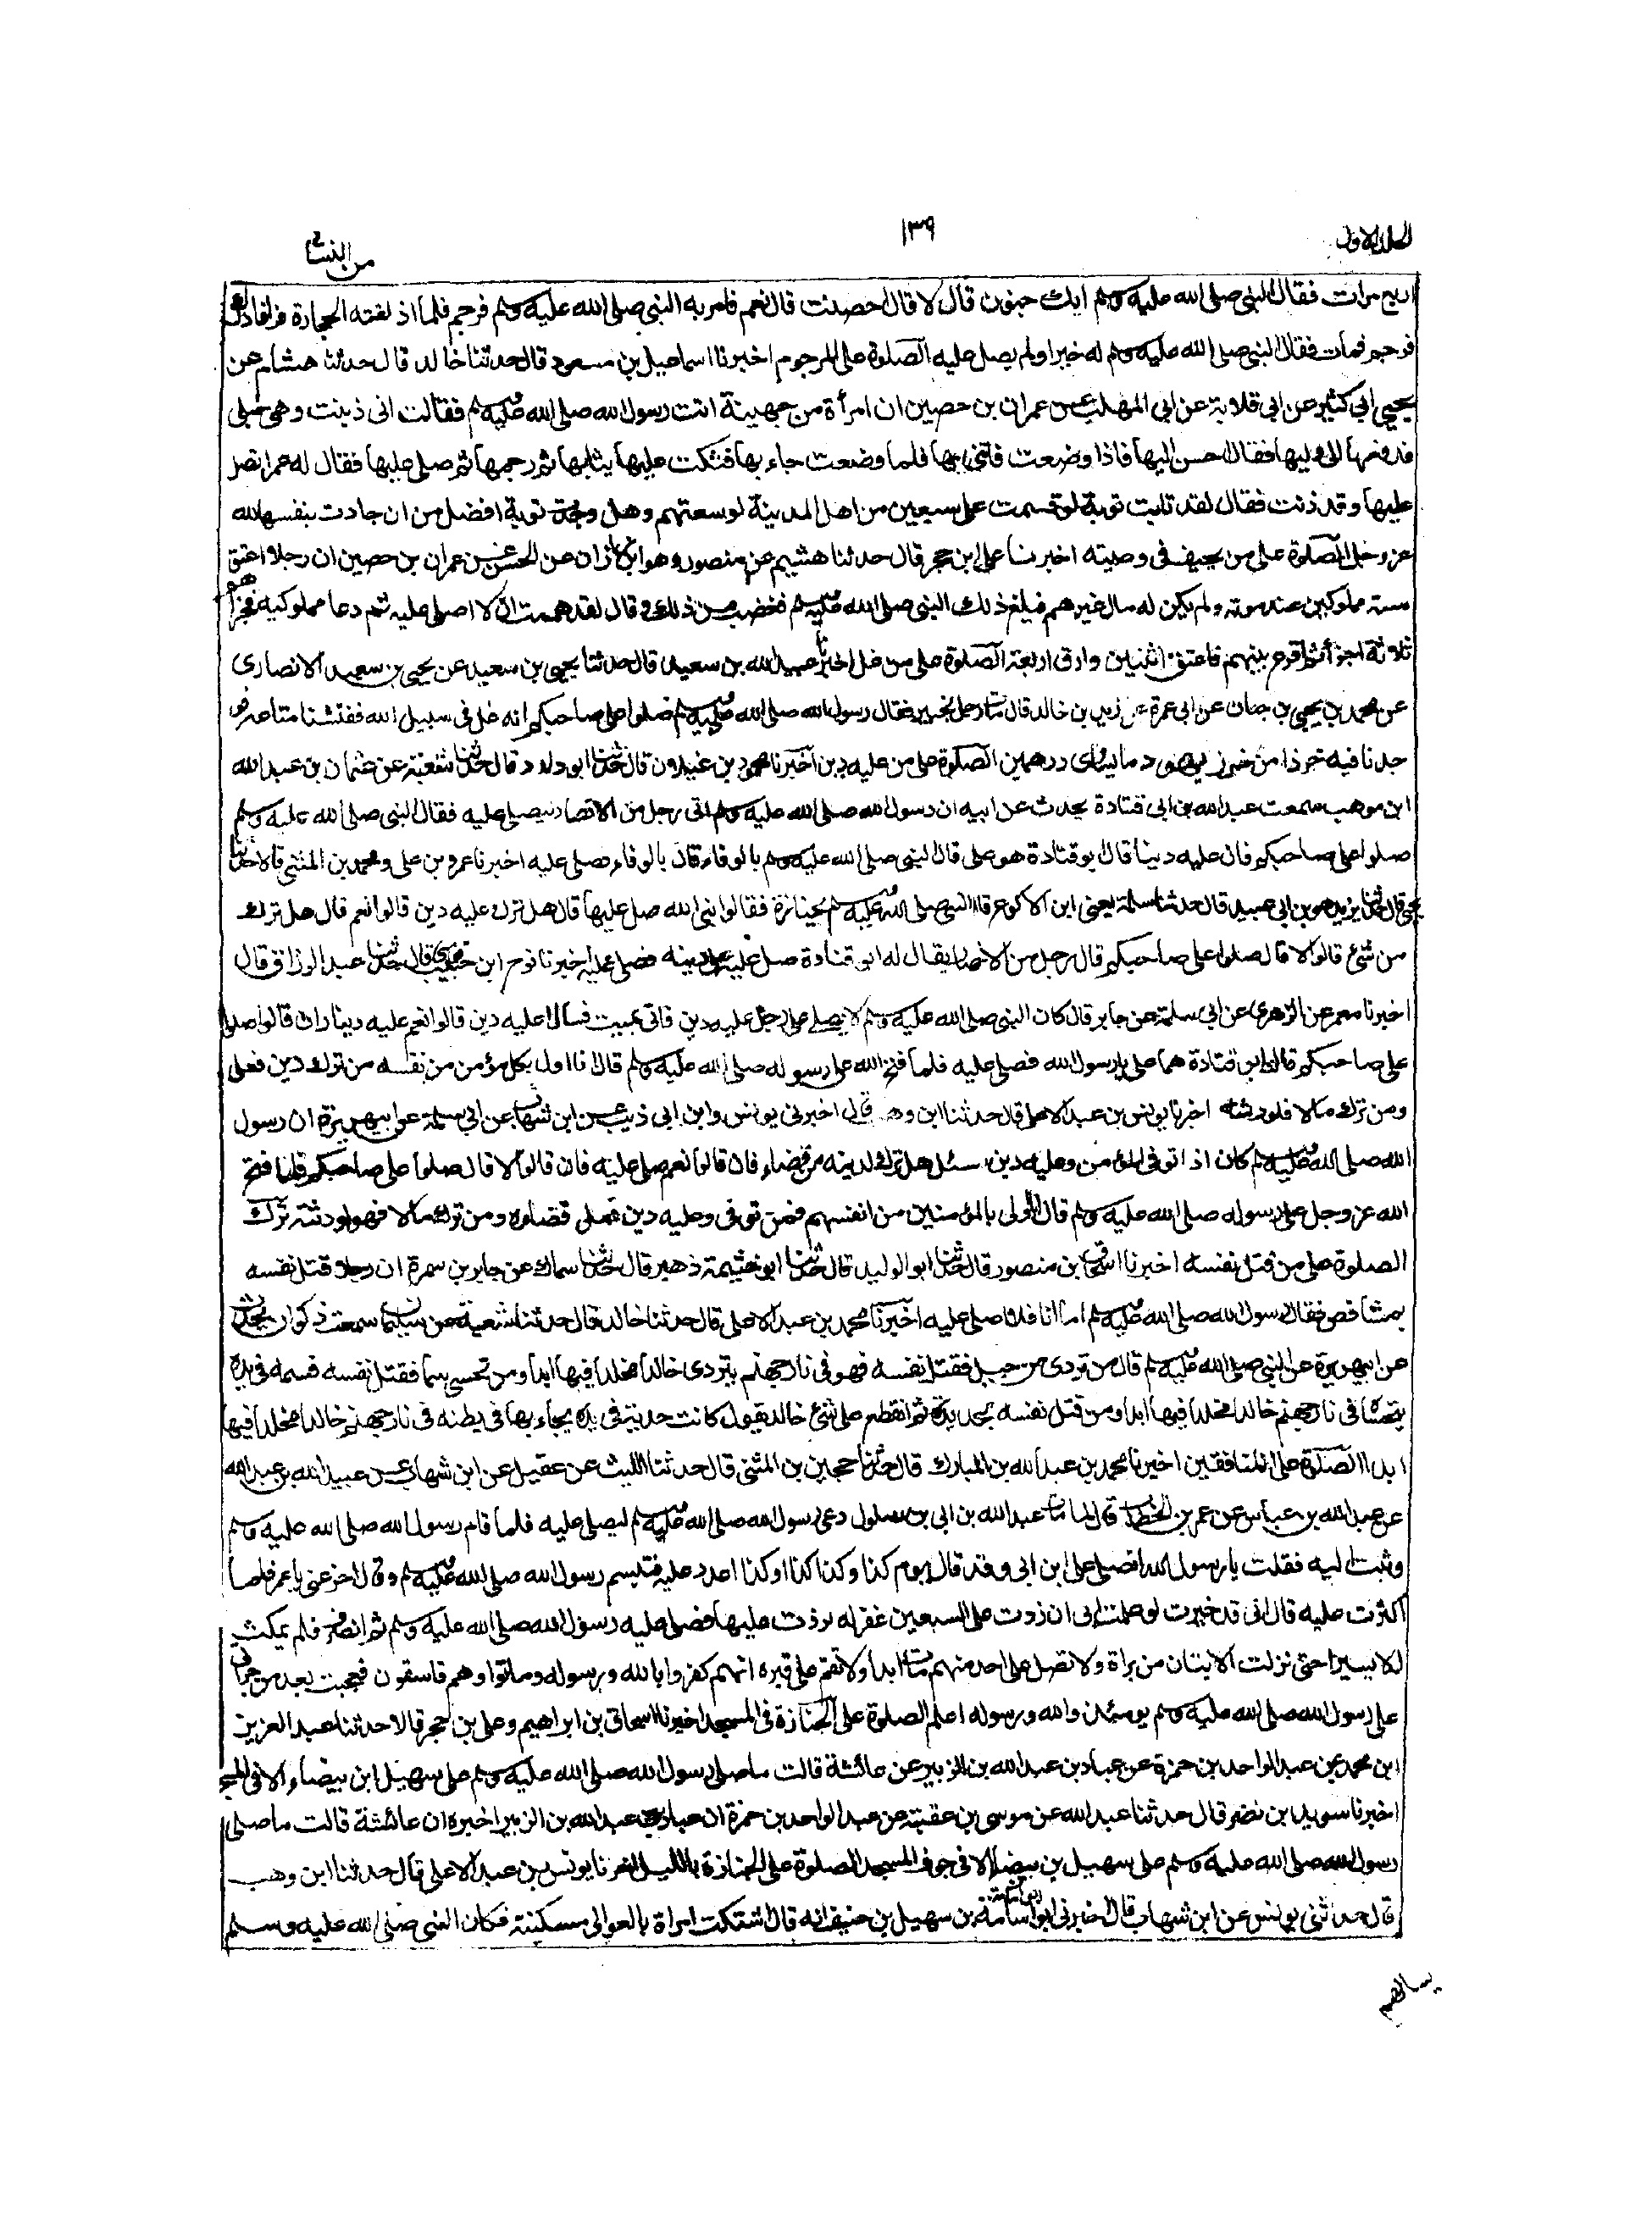 الجلد الاول ١٣٩ من النسائي
اربع مرات فقال النبي صلى الله عليه وسلم ابك جنون قال لا قال احصنت قال نعم فامر به النبي صلى الله عليه وسلم فرجم فلما اذلفته الحجارة فر فادرك
فرجم فمات فقال النبي صلى الله عليه وسلم له خيرا ولم يصل عليه الصلوة على المرجوم اخبرنا اسماعيل بن مسعود قال حدثنا خالد قال حدثنا هشام عن
يحيى ابي كثير عن ابي قلابة عن ابي المهلب عن عمران بن حصين ان امرأة من جهينة اتت رسول الله صلى الله عليه وسلم فقالت اني زنيت وهي حبلى
فدفعها الى وليها فقال احسن اليها فاذا وضعت فاتني بها فلما وضعت جاء بها فشكت عليها ثيابها ثم رجمها ثم صلى عليها فقال له عمر اتصل
عليها وقد زنت فقال لقد تابت توبة لو قسمت على سبعين من اهل المدينة لوسعتهم وهل وجدت توبة افضل من ان جادت بنفسها لله
عز وجل الصلوة على من يحيف في وصيته اخبرنا على ابن حجر قال حدثنا هشيم عن منصور وهو ابن زاذان عن الحسن عن عمران بن حصين ان رجلا اعتق
ستة مملوكين عند موته ولم يكن له مال غيرهم فبلغ ذلك النبي صلى الله عليه وسلم فغضب من ذلك وقال لقد هممت ان لا اصلى عليه ثم دعا مملوكيه فجزأهم
ثلاثة اجزأ ثم اقرع بينهم فاعتق اثنين وارق اربعة الصلوة على من غل اخبرنا عبيد الله بن سعيد قال حدثنا يحيى بن سعيد عن يحيى بن سعيد الانصارى
عن محمد بن يحيى بن حبان عن ابى عمرة عن زيد بن خالد قال مات رجل بخيبر فقال رسول الله صلى الله عليه وسلم صلوا على صاحبكم انه غل فى سبيل الله ففتشنا متاعه فو
جدنا فيه خرزا من خرز يهود ما يساوى درهمين الصلوة على من عليه دين اخبرنا محمود بن غيلان قال حدثنا ابو داود قال حدثنا شعبة عن عثمان بن عبد الله
ابن موهب سمعت عبد الله بن ابى قتادة يحدث عن ابيه ان رسول الله صلى الله عليه وسلم اتى برجل من الانصار ليصلى عليه فقال النبى صلى الله عليه وسلم
صلوا على صاحبكم فان عليه دينا قال ابو قتادة هو على قال النبى صلى الله عليه وسلم بالوفاء قال بالوفاء فصلى عليه اخبرنا عمرو بن على ومحمد بن المثنى قالا حدثنا
يحيى قال حدثنا يزيد هو بن ابى عبيد قال حدثنا سلمة يعنى ابن الاكوع قال اتى النبى صلى الله عليه وسلم بجنازة فقالوا يا نبى الله صل عليها قال هل ترك عليه دين قالوا نعم قال هل ترك
من شئ قالوا لا قال صلوا على صاحبكم قال رجل من الانصار يقال له ابو قتادة صل عليه وعلى دينه فصلى عليه اخبرنا نوح ابن حبيب قومسى قال حدثنا عبد الرزاق قال
اخبرنا معمر عن الزهرى عن ابى سلمة عن جابر قال كان النبى صلى الله عليه وسلم لا يصلى على رجل عليه دين فاتى بميت فسال اعليه دين قالوا نعم عليه ديناران قالوا صلوا
على صاحبكم قال ابو قتادة هما على يا رسول الله فصلى عليه فلما فتح الله على رسوله صلى الله عليه وسلم قال انا اولى بكل مؤمن من نفسه من ترك دين فعلى
ومن ترك مالا فلورثته اخبرنا يونس بن عبد الاعلى قال حدثنا ابن وهب قال اخبرنى يونس وابن ابى ذئب عن ابن شهاب عن ابى سلمة عن ابى هريرة ان رسول
الله صلى الله عليه وسلم كان اذا توفى المؤمن وعليه دين سئل هل ترك لدينه من قضاء فان قالوا نعم صلى عليه فان قالوا لا قال صلوا على صاحبكم فلما فتح
الله عز وجل على رسوله صلى الله عليه وسلم قال انا اولى بالمؤمنين من انفسهم فمن توفى وعليه دين فعلى قضاؤه ومن ترك مالا فهو لورثته ترك
الصلوة على من قتل نفسه اخبرنا اسحاق بن منصور قال حدثنا ابو الوليد قال حدثنا ابو خثيمة زهير قال حدثنا سماك عن جابر بن سمرة ان رجلا قتل نفسه
بمشاقص فقال رسول الله صلى الله عليه وسلم اما انا فلا اصلى عليه اخبرنا محمد بن عبد الاعلى قال حدثنا خالد قال حدثنا شعبة عن سليمان سمعت ذكوان يحدث
عن ابى هريرة عن النبى صلى الله عليه وسلم قال من تردى من جبل فقتل نفسه فهو فى نار جهنم يتردى خالدا مخلدا فيها ابدا ومن تحسى سما فقتل نفسه فسمه فى يده
يتحساه فى نار جهنم خالدا مخلدا فيها ابدا ومن قتل نفسه بحديدة ثم انقطع على شئ خالد يقول كانت حديدته فى يده يجاء بها فى بطنه فى نار جهنم خالدا مخلدا فيها
ابدا الصلوة على المنافقين اخبرنا محمد بن عبد الله بن المبارك قال حدثنا حجين بن المثنى قال حدثنا الليث عن عقيل عن ابن شهاب عن عبيد الله بن عبد الله
عن عبد الله بن عباس عن عمر بن الخطاب قال لما مات عبد الله بن ابى بن سلول دعى رسول الله صلى الله عليه وسلم ليصلى عليه فلما قام رسول الله صلى الله عليه وسلم
وثبت اليه فقلت يا رسول الله اتصلى على ابن ابى وقد قال يوم كذا وكذا كذا وكذا اعدد عليه فتبسم رسول الله صلى الله عليه وسلم وقال اخر عنى يا عمر فلما
اكثرت عليه قال انى قد خيرت لو علمت انى ان زدت على السبعين غفر له لزدت عليها فصلى عليه رسول الله صلى الله عليه وسلم ثم انصرف فلم يمكث
الا يسيرا حتى نزلت الايتان من براة ولا تصل على احد منهم مات ابدا ولا تقم على قبره انهم كفروا بالله وبرسوله وماتوا وهم فاسقون فعجبت بعد من جرأتى
على رسول الله صلى الله عليه وسلم يومئذ والله ورسوله اعلم الصلوة على الجنازة فى المسجد اخبرنا اسحاق بن ابراهيم وعلى بن حجر قالا حدثنا عبد العزيز
ابن محمد عن عبد الواحد بن حمزة عن عباد بن عبد الله بن الزبير عن عائشة قالت ما صلى رسول الله صلى الله عليه وسلم على سهيل ابن بيضاء الا فى المسجد
اخبرنا سويد بن نضر قال حدثنا عبد الله عن موسى بن عقبة عن عبد الواحد بن حمزة ان عباد بن عبد الله بن الزبير اخبره ان عائشة قالت ما صلى
رسول الله صلى الله عليه وسلم على سهيل بن بيضاء الا فى جوف المسجد الصلوة على الجنازة بالليل اخبرنا يونس بن عبد الاعلى قال حدثنا ابن وهب
قال حدثنى يونس عن ابن شهاب قال اخبرنى ابو اسامة بن سهيل بن حنيف انه قال اشتكت امراة بالعوالى مسكينة فكان النبى صلى الله عليه وسلم
يسالهم